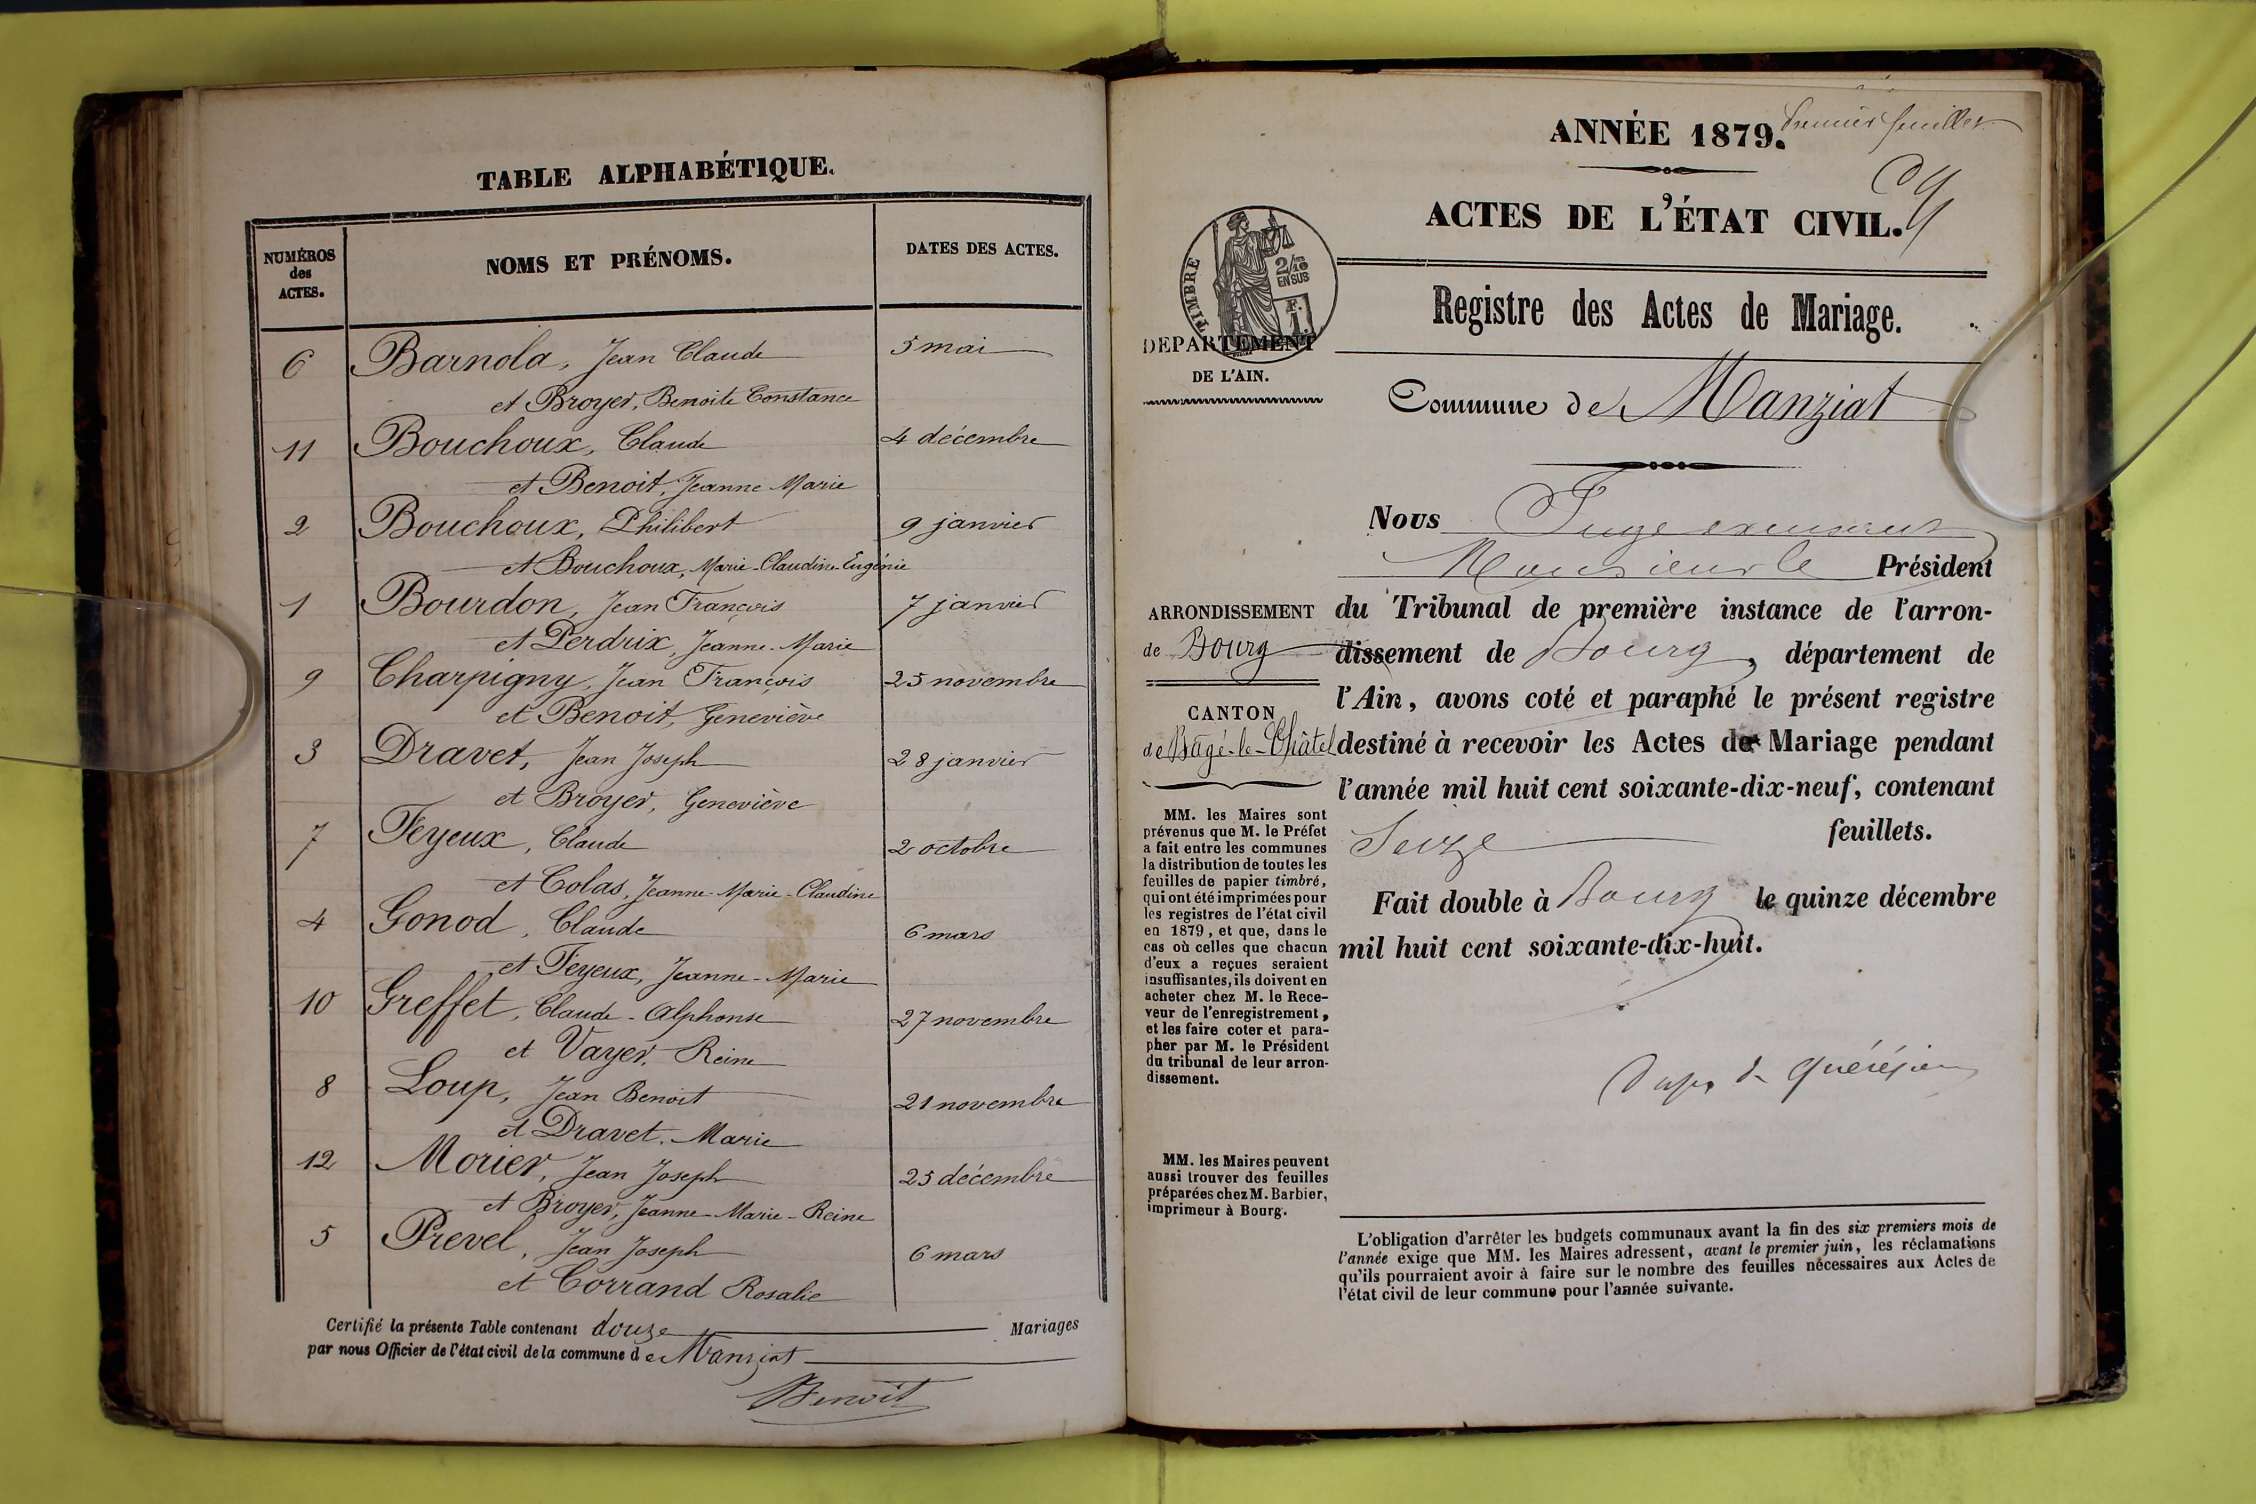 TABLE ALPHABÉTIQUE.
NUMÉROS des ACTES.
NOMS ET PRÉNOMS.
DATES DES ACTES.
6 Barnola, Jean Claude 5 mai
et Broyer, Benoite Constance
11 Bouchoux, Claude 4 décembre
et Benoit, Jeanne Marie
2 Bouchoux, Philibert 9 janvier
et Bouchoux, Marie-Claudine-Eugénie
1 Bourdon, Jean François 7 janvier
et Perdrix, Jeanne-Marie
9 Charpigny, Jean François 25 novembre
et Benoit, Geneviève
3 Dravet, Jean Joseph 28 janvier
et Broyer, Geneviève
7 Feyeux, Claude 2 octobre
et Colas, Jeanne-Marie-Claudine
4 Gonod, Claude 6 mars
et Feyeux, Jeanne-Marie
10 Greffet, Claude-Alphonse 27 novembre
et Vayer, Reine
8 Loup, Jean Benoit 21 novembre
et Dravet, Marie
12 Morier, Jean Joseph 25 décembre
et Broyer, Jeanne-Marie-Reine
5 Prevel, Jean Joseph 6 mars
et Corrand Rosalie
Certifié la présente Table contenant douze Mariages
par nous Officier de l'état civil de la commune de Manziat
Benoit
premier feuillet
ANNÉE 1879.
ACTES DE L'ÉTAT CIVIL.
TIMBRE
2/10
EN SUS
F.
1.
Registre des Actes de Mariage.
DEPARTEMENT
DE L'AIN.
Commune de Manziat
Nous Juge
Monsieur le Président
ARRONDISSEMENT
de Bourg
CANTON
de Bâgé-le-Châtel
du Tribunal de première instance de l'arron-
dissement de Bourg, département de
l'Ain, avons coté et paraphé le présent registre
destiné à recevoir les Actes de Mariage pendant
l'année mil huit cent soixante-dix-neuf, contenant
Seize feuillets.
Fait double à Bourg le quinze décembre
mil huit cent soixante-dix-huit.
MM. les Maires sont
prévenus que M. le Préfet
a fait entre les communes
la distribution de toutes les
feuilles de papier timbré,
qui ont été imprimées pour
les registres de l'état civil
en 1879, et que, dans le
cas où celles que chacun
d'eux a reçues seraient
insuffisantes, ils doivent en
acheter chez M. le Rece-
veur de l'enregistrement,
et les faire coter et para-
pher par M. le Président
du tribunal de leur arron-
dissement.
MM. les Maires peuvent
aussi trouver des feuilles
préparées chez M. Barbier,
imprimeur à Bourg.
L'obligation d'arrêter les budgets communaux avant la fin des six premiers mois de
l'année exige que MM. les Maires adressent, avant le premier juin, les réclamations
qu'ils pourraient avoir à faire sur le nombre des feuilles nécessaires aux Actes de
l'état civil de leur commune pour l'année suivante.